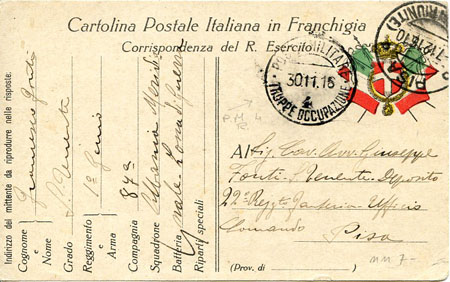 Cartolina Postale Italiana in Franchigia
Corrispondenza del R. Esercito
POSTA MILITARE
30.11.16
4
TRUPPE OCCUPAZIONE
PISA
P.M. 4
R.
Indirizzo del mittente da riprodurre nelle risposte.
Cognome e Nome Francesco Fonti
Grado S. Tenente
Reggimento o Arma 1° Genio
Compagnia 87a
Squadrone Albania
Batteria
Riparti speciali Zona Guerra
Al Sig. Cav. Avv. Giuseppe
Fonti S. Tenente Deposito
22° Regg. Fanteria Ufficio
Comando Pisa
(Prov. di )